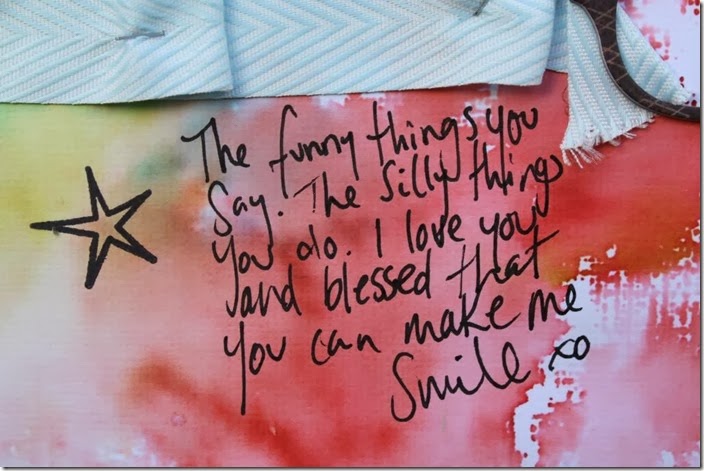 The funny things you
Say. The silly things
you do. I love you
and blessed that
you can make me
Smile xo